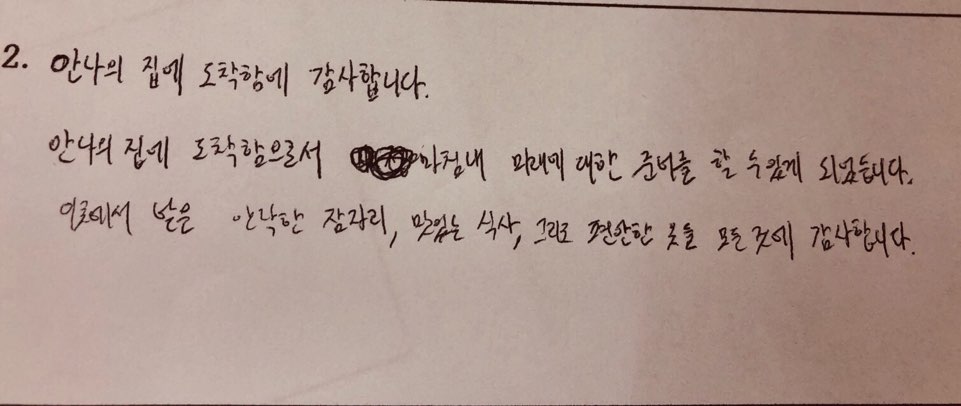 2. 안나의 집에 도착함에 감사합니다.
안나의 집에 도착함으로서 마침내 미래에 대한 준비를 할 수있게 되었습니다.
이곳에서 받은 안락한 잠자리, 맛있는 식사, 그리고 편안한 옷들 모든 것에 감사합니다.